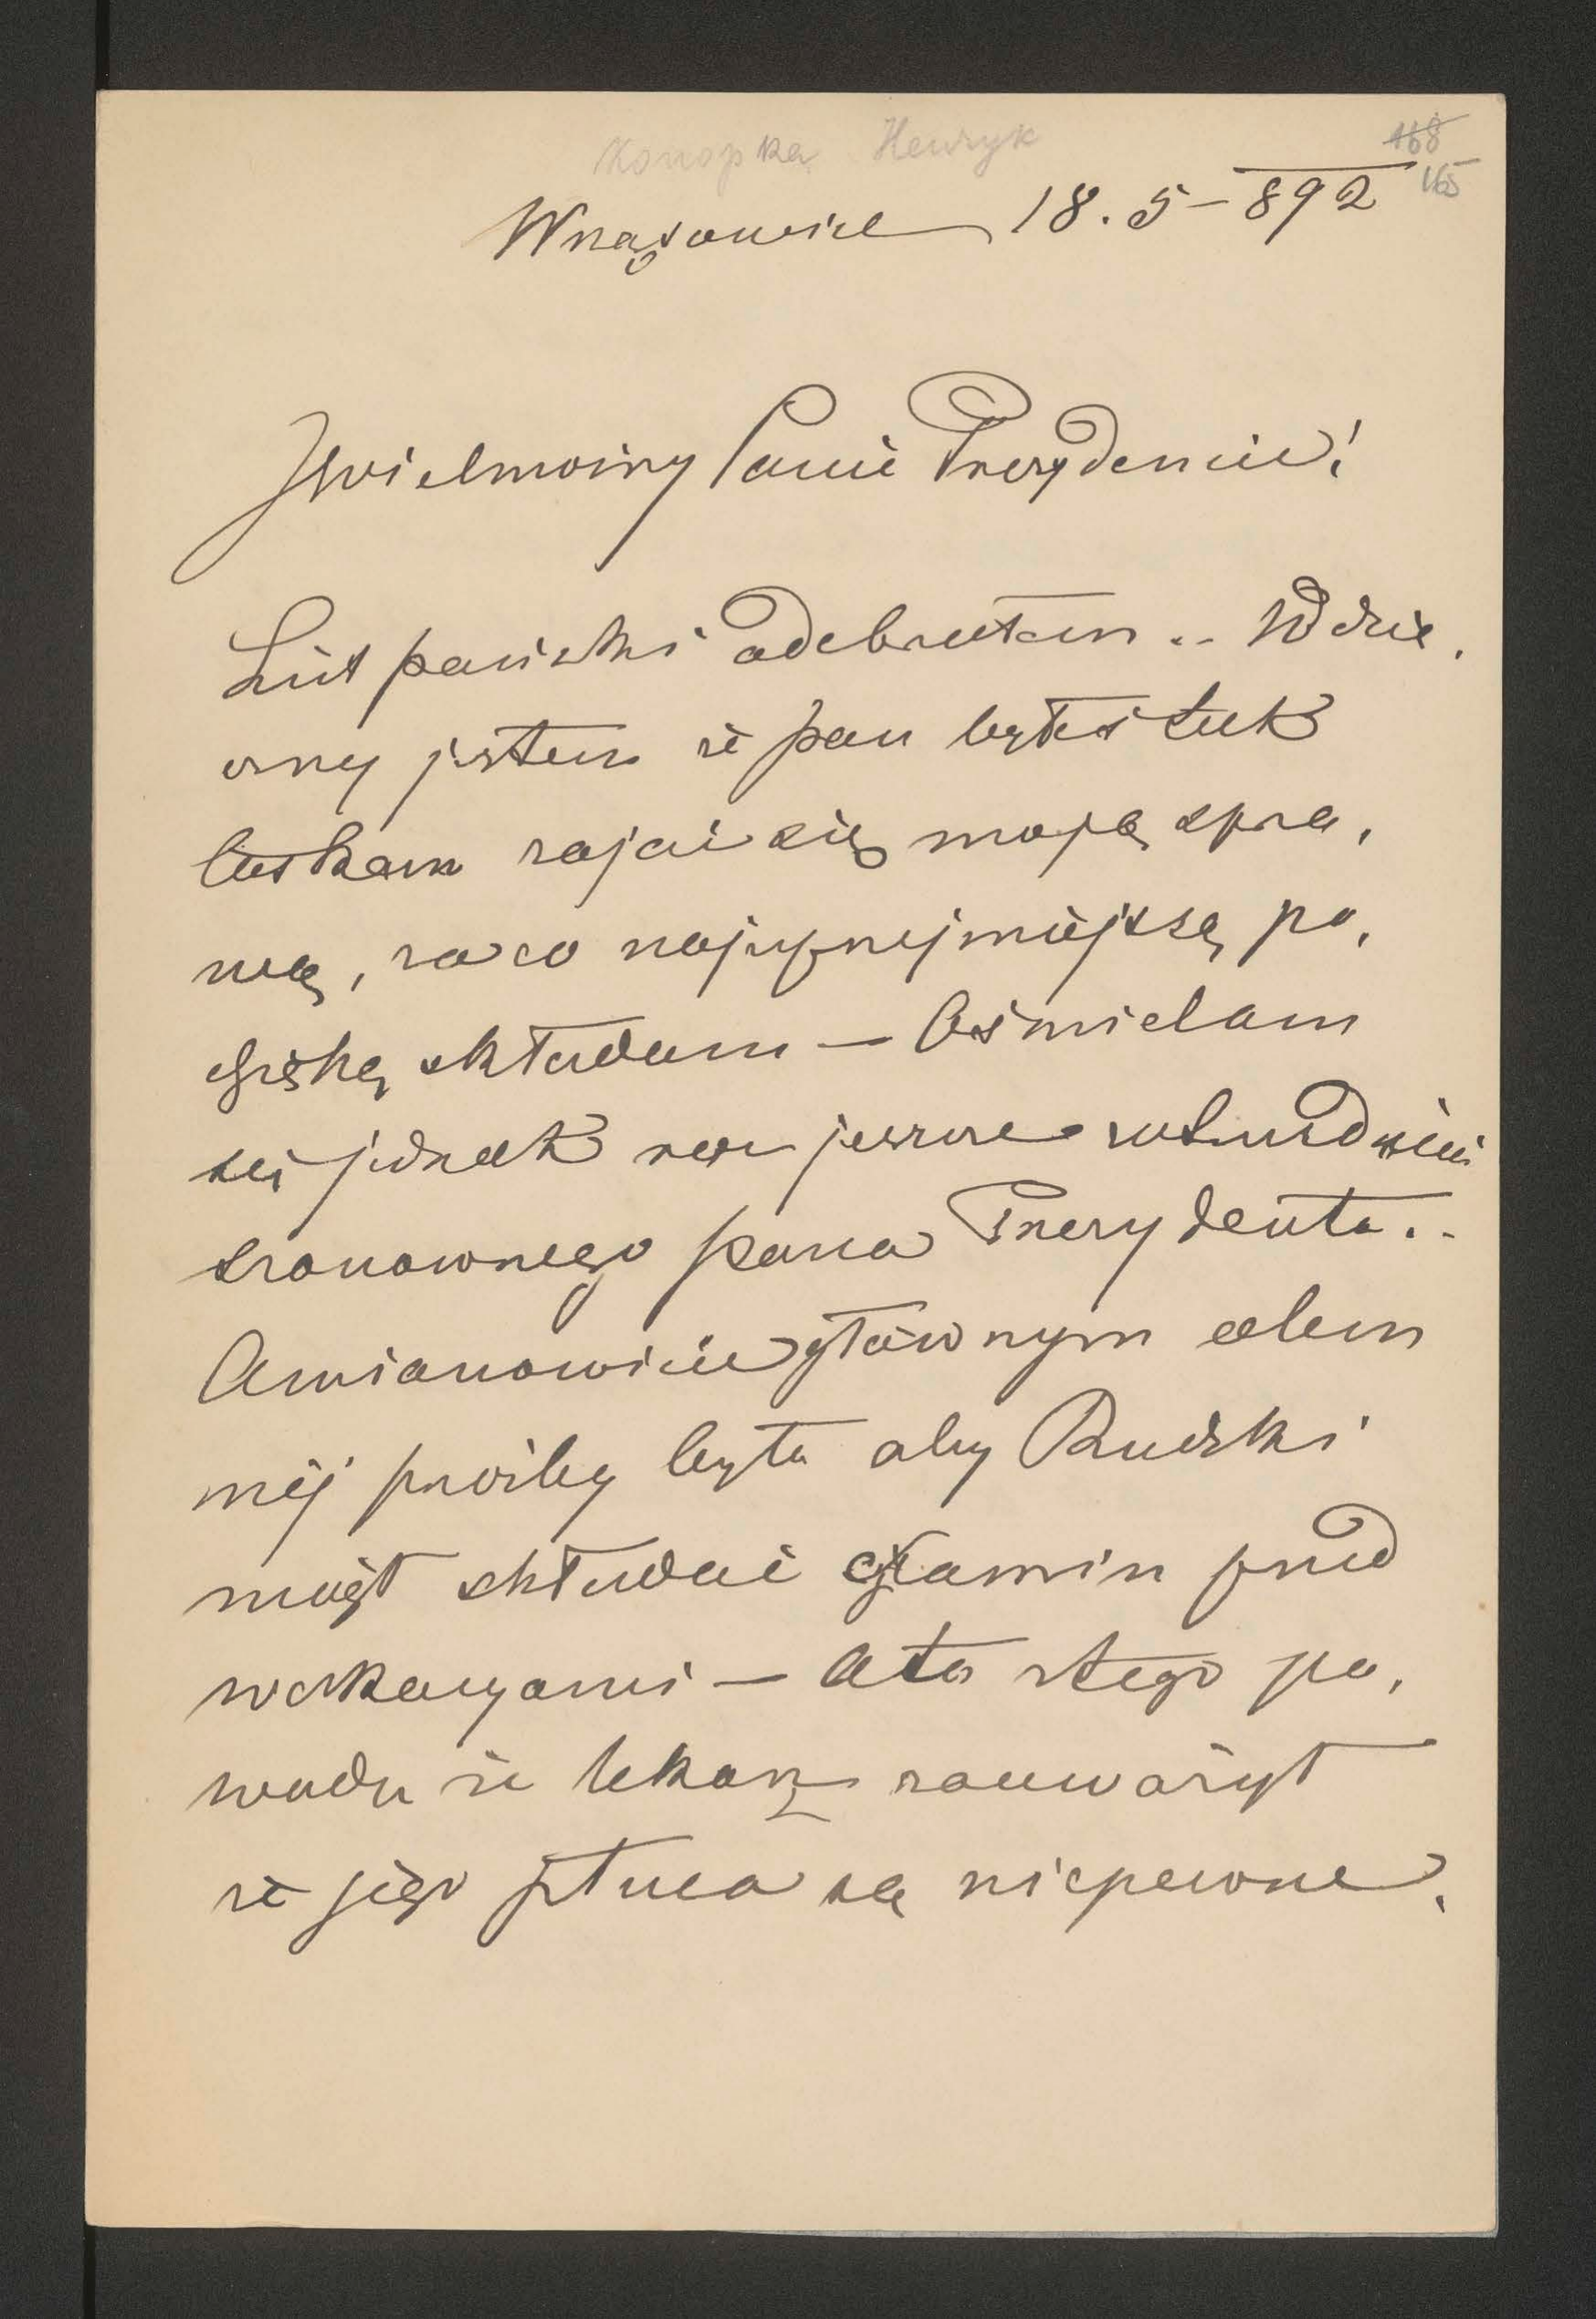 Konopka Henryk
168
165
Wrząsowice 18. 5 – 892
JWielmożny Panie Prezydencie!
List pański odebrałem .. Wdzię,
czny jestem że pan byłeś tak
łaskaw zająć się moją spra,
wą, za co najuprzejmiejszą po,
dziękę składam – Ośmielam
się jednak raz jeszcze utrudnić
szanownego pana Prezydenta ..
A mianowicie głównym celem
mej prośby było aby Rudzki
mógł składać egzamin przed
wakacyami – A to z tego po,
wodu że lekarz zauważył
że jego płuca są niepewne,